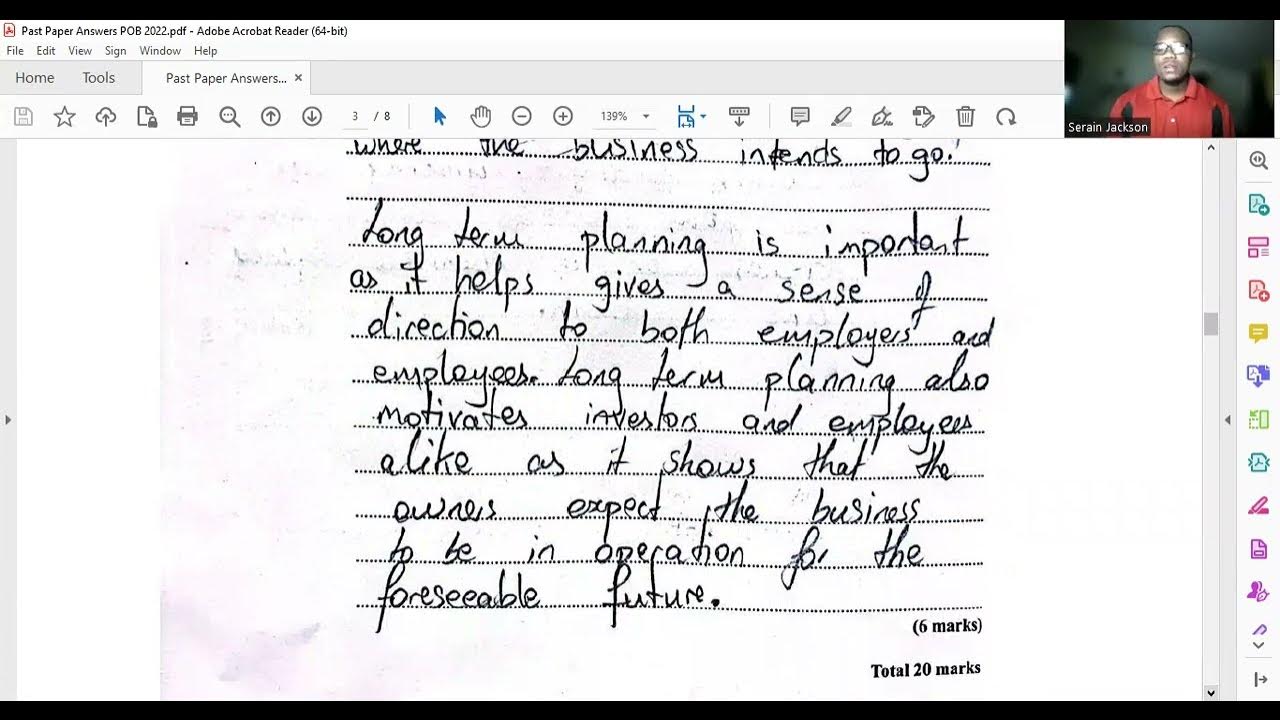 Past Paper Answers POB 2022.pdf - Adobe Acrobat Reader (64-bit)
File Edit View Sign Window Help
Home Tools Past Paper Answers... ×
3 / 8 139%
Serain Jackson
where the business intends to go.
Long term planning is important
as it helps gives a sense of
direction to both employers and
employees. Long term planning also
motivates investors and employees
alike as it shows that the
owners expect the business
to be in operation for the
foreseeable future.
(6 marks)
Total 20 marks